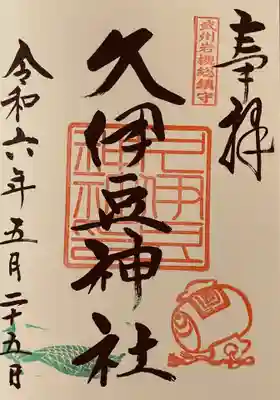 奉拝
武州岩槻総鎮守
久伊豆神社
令和六年五月二十五日